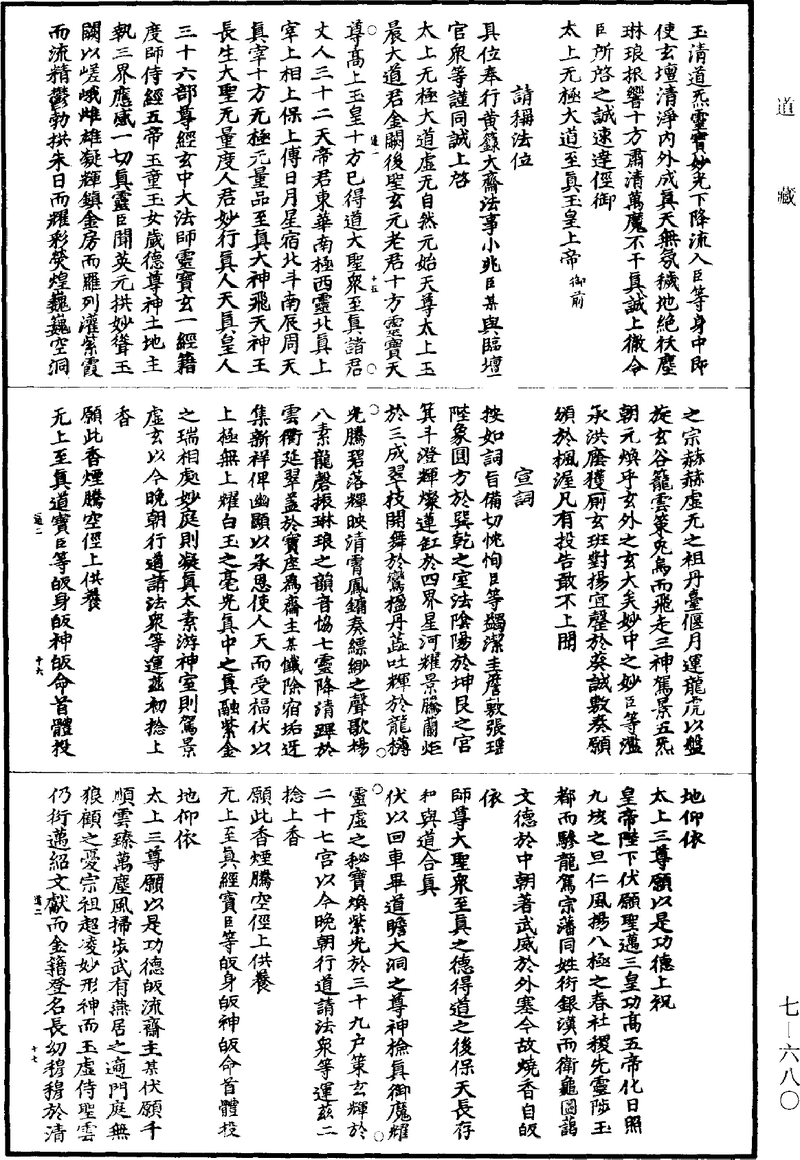 道藏
七—六八〇
玉清道炁靈寶妙光下降流入臣等身中即
使玄壇清淨內外成真天無氛穢地絕袄塵
琳琅振響十方肅清萬魔不干真誠上徹令
臣所啓之誠速達徑御
太上无極大道至真玉皇上帝 御前
請稱法位
具位奉行黃籙大齋法事小兆臣某與臨壇一
官衆等謹同誠上啓
太上无極大道虛无自然元始天尊太上玉
晨大道君金闕後聖玄元老君十方靈寶天
道一 十五
尊高上玉皇十方已得道大聖衆至真諸君
丈人三十二天帝君東華南極西靈北真上
宰上相上保上傅日月星宿北斗南辰周天
真宰十方无極无量品至真大神飛天神王
長生大聖无量度人君妙行真人天真皇人
三十六部尊經玄中大法師靈寶玄一經籍
度師侍經五帝玉童玉女歲德尊神土地主
執三界應感一切真靈臣聞英元拱妙聳玉
闕以嵯峨雌雄凝輝鎮金房而羅列灌紫霞
而流精鬱勃拱朱日而耀彩熒煌巍巍空洞
之宗赫赫虛元之祖丹臺偃月運龍虎以盤
旋玄谷籠雲策兎烏而飛走三神駕景五炁
朝元煥乎玄外之玄大矣妙中之妙臣等濫
承洪廕獲廁玄班對揚宜罄於葵誠敷奏願
頒於楓渥凡有投告敢不上聞
宣詞
按如詞旨備切忱恂臣等蠲潔圭詹敷張瑶
陛象圓方於巽乾之室法陰陽於坤艮之宮
箕斗澄輝燦蓮缸於四界星河耀景騰蘭炬
於三成翠枝開舞於鸞楹丹蘂吐輝於龍轉
光騰碧落輝映清霄鳳鏽奏縹緲之聲歌揚
八素龍磬振琳琅之韻音恊七靈降清蹕於
雲衢延翠蓋於寶座爲齋主某懺除宿垢迓
集新祥俾幽顯以承恩使人天而受福伏以
上極無上耀白玉之毫光真中之真融紫金
之瑞相處妙庭則凝真太素游神室則駕景
虛玄以今晚朝行道請法衆等運茲初捻上
香
願此香煙騰空徑上供養
无上至真道寶臣等皈身皈神皈命首體投
道二 十六
地仰依
太上三尊願以是功德上祝
皇帝陛下伏願聖邁三皇功高五帝化日照
九垓之旦仁風揚八極之春社稷先靈陟玉
都而驂龍駕宗藩同姓衍銀漢而衛龜圖藹
文德於中朝著武威於外塞今故燒香自皈
依
師尊大聖衆至真之德得道之後保天長存
和與道合真
伏以回車畢道瞻大洞之尊神檢真御魔耀
靈虛之秘寶煥紫光於三十九户策玄輝於
二十七宮以今晚朝行道請法衆等運茲二
捻上香
願此香煙騰空徑上供養
无上至真經寶臣等皈身皈神皈命首體投
地仰依
太上三尊願以是功德皈流齋主某伏願千
順雲臻萬塵風掃步武有燕居之適門庭無
狼顧之憂宗祖超凌妙形神而玉虛侍聖雲
仍衍邁紹文獻而金籍登名長幼穆穆於清
道二 十七